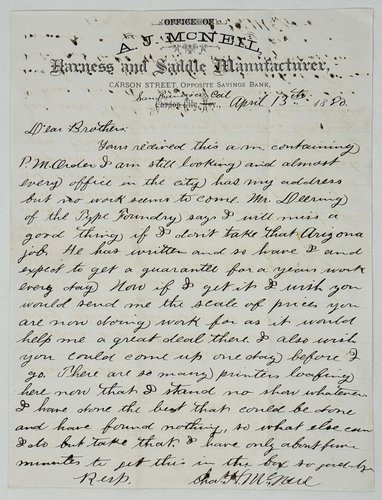 OFFICE OF
A. J. McNEIL,
Harness and Saddle Manufacturer,
CARSON STREET, OPPOSITE SAVINGS BANK,
San Francisco Cal
Carson City, Nev., April 13th 1880.
Dear Brothers:
Yours recived this a.m. containing
P.M. Order I am still looking and almost
every office in the city has my address
but no work seems to come. Mr. Deering
of the Type Foundry says I will miss a
good thing if I don't take that Arizona
job. He has written and so have I and
expect to get a guarantee for a years work
every day Now if I get it I wish you
would send me the scale of prices you
are now doing work for as it would
help me a great deal there. I also wish
you could come up one day before I
go. There are so many printers loafing
here now that I stand no show whatever
I have done the best that could be done
and have found nothing, so what else can
I do but take that. I have only about five
minutes to get this in the box so good-bye
Resp. Chas. McNeil